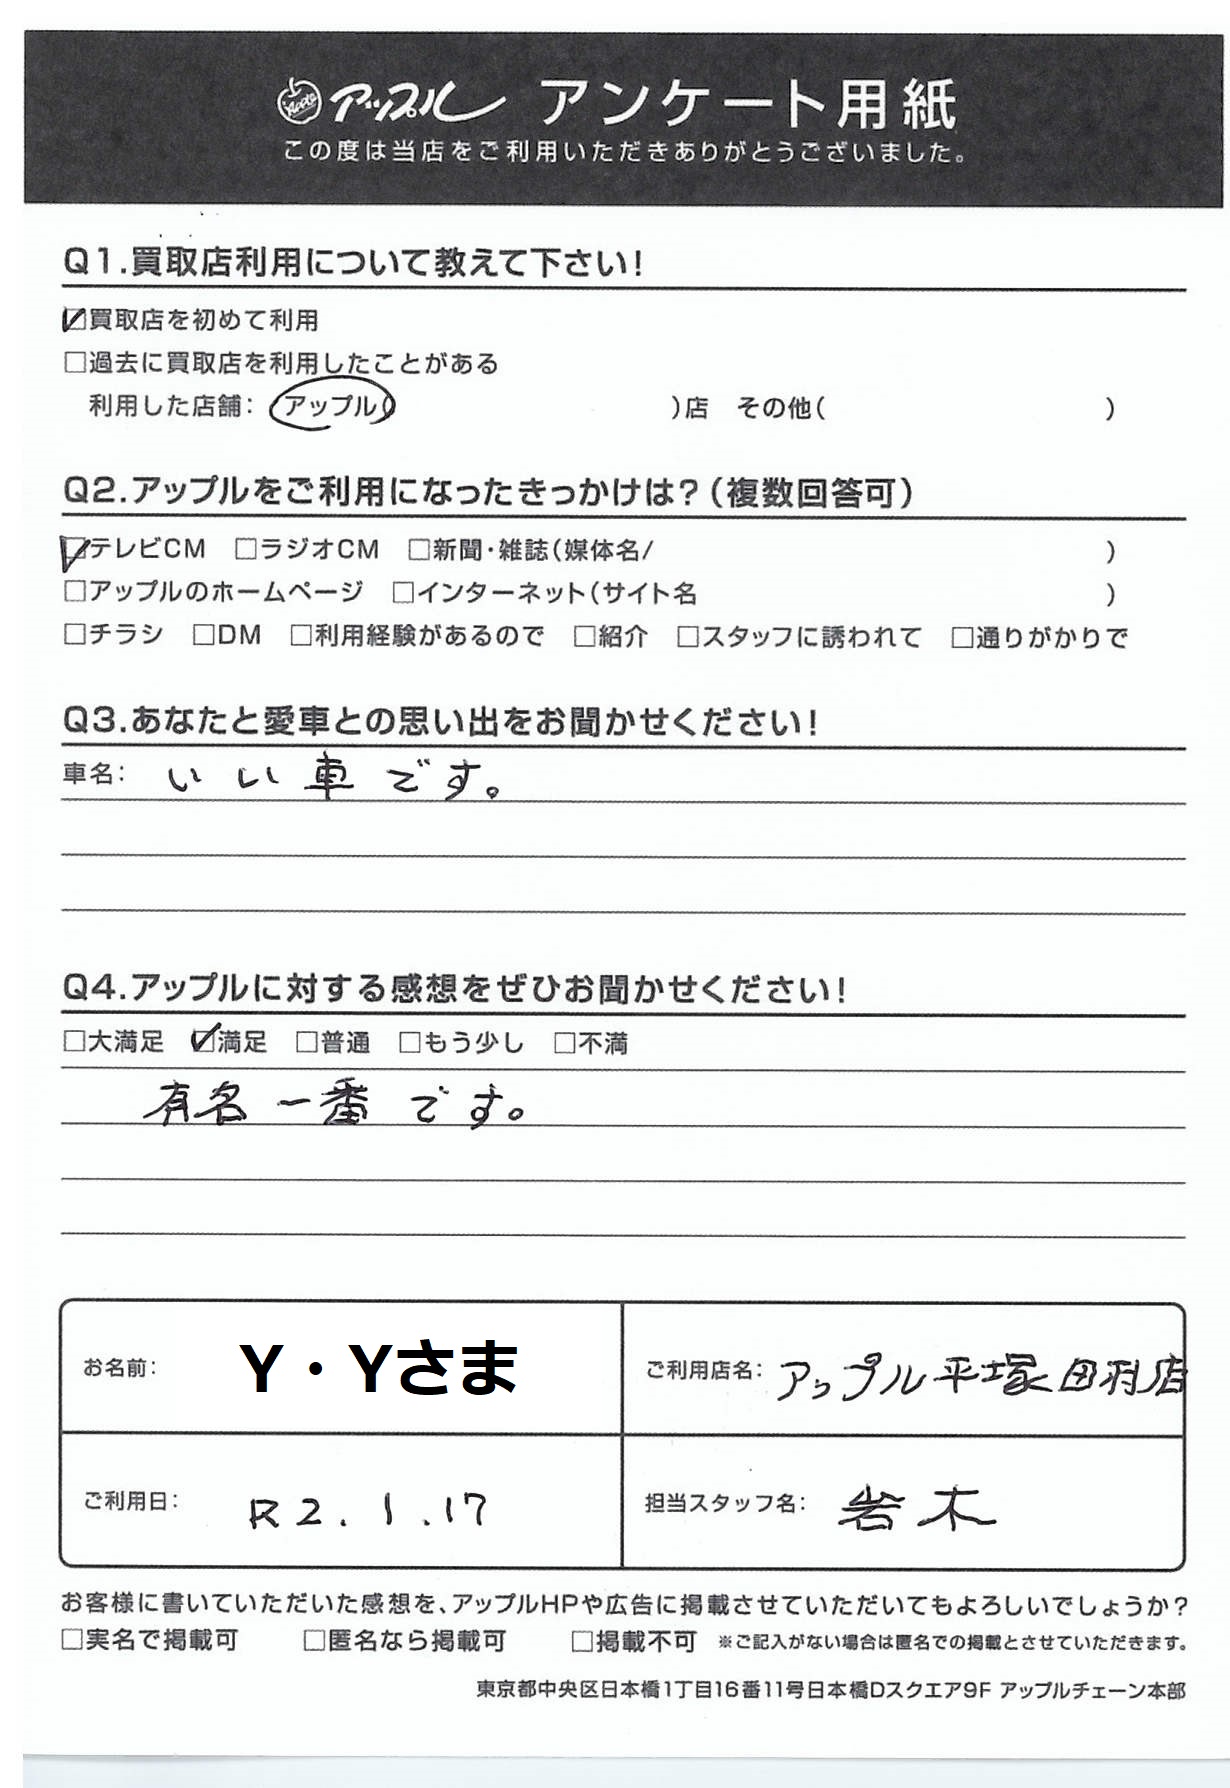 Apple アップル アンケート用紙
この度は当店をご利用いただきありがとうございました。
Q1.買取店利用について教えて下さい!
☑買取店を初めて利用
□過去に買取店を利用したことがある
利用した店舗: アップル( )店 その他( )
Q2.アップルをご利用になったきっかけは?(複数回答可)
☑テレビCM □ラジオCM □新聞・雑誌(媒体名/ )
□アップルのホームページ □インターネット(サイト名 )
□チラシ □DM □利用経験があるので □紹介 □スタッフに誘われて □通りがかりで
Q3.あなたと愛車との思い出をお聞かせください!
車名: いい車です。
Q4.アップルに対する感想をぜひお聞かせください!
□大満足 ☑満足 □普通 □もう少し □不満
有名一番です。
お名前: Y・Yさま
ご利用店名: アップル平塚田村店
ご利用日: R2.1.17
担当スタッフ名: 岩木
お客様に書いていただいた感想を、アップルHPや広告に掲載させていただいてもよろしいでしょうか?
□実名で掲載可 □匿名なら掲載可 □掲載不可 ※ご記入がない場合は匿名での掲載とさせていただきます。
東京都中央区日本橋1丁目16番11号日本橋Dスクエア9F アップルチェーン本部